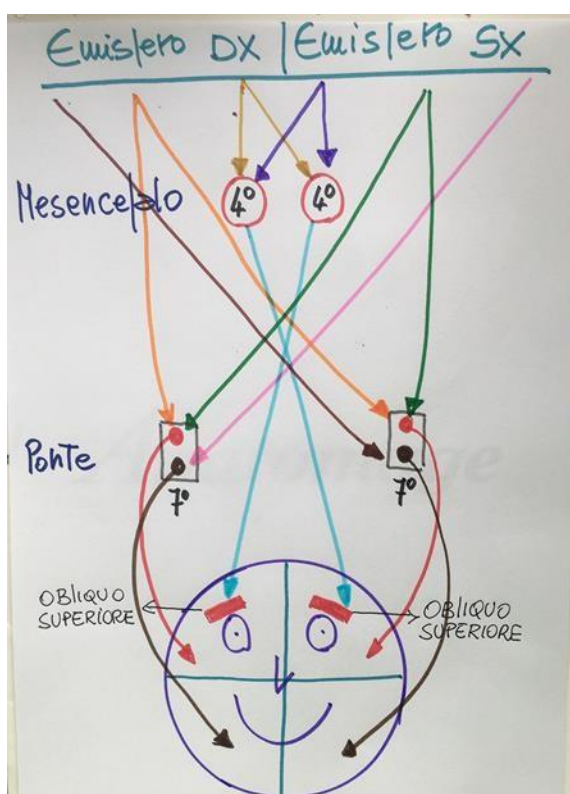 Emisfero DX | Emisfero SX
4° 4°
Mesencefalo
Ponte
7° 7°
OBLIQUO
SUPERIORE
OBLIQUO
SUPERIORE